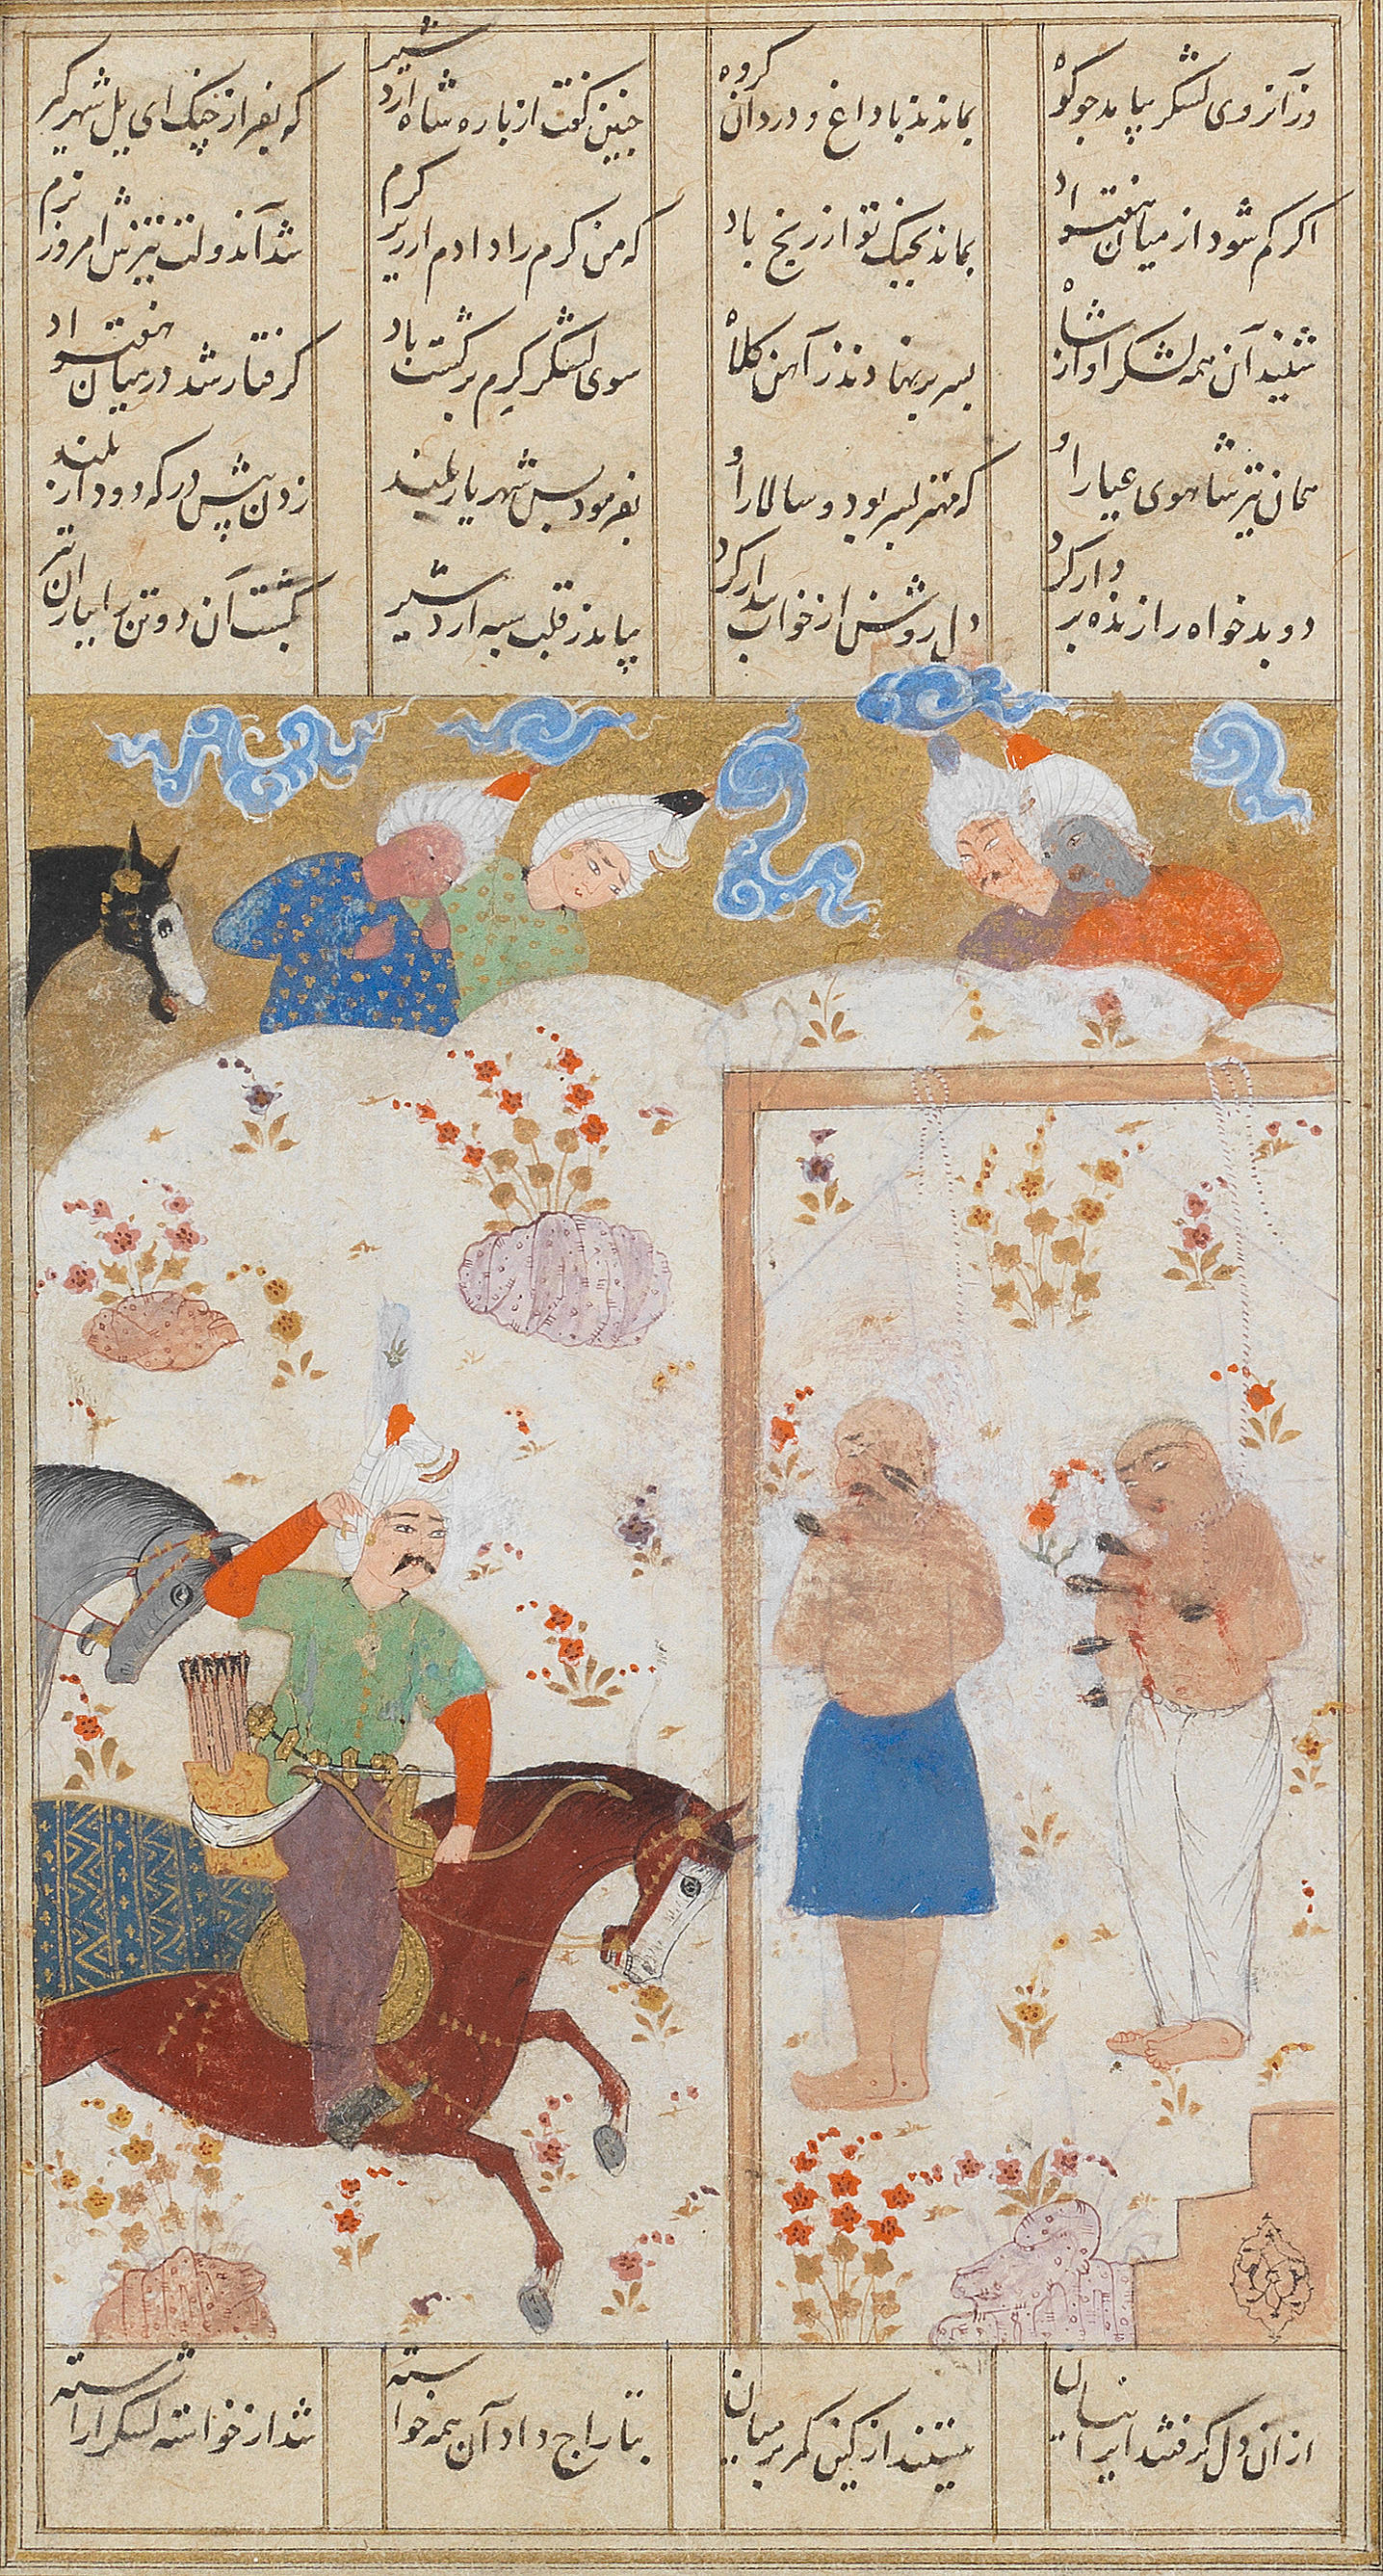 وز آنروی لشکر بیامد چو کوه بماندند با داغ و درد آن کروه چنین کفت از باره شاه اردشیر که بفراز جنک ای یل شهر کیر
اکر کم شود از میان هفتواد بماند بجنک تو از رنج باد که من کرم را دادم ارزیر کرم شد آن دولت تیزش امروز نرم
شنید آن همه لشکر اواز شاه بسر بر نهادند ز آهن کلاه سوی لشکر کرم برکشت باد کرفتار شد در میان هفتواد
همان نیز شاهوی عیار او که مهتر پسر بود و سالار او بفرمود پس شهریار بلند زدن پیش در که دو دار بلند
دو بدخواه را زنده بر دار کرد دل روشن از خواب بیدار کرد بیامد ز قلب سپه اردشیر بکشت آن دو تن را بباران تیر
از ان دل کرفتند ایرانیان ببستند از کین کمر بر میان بتاراج داد آن همه خواسته شد از خواسته لشکر اراسته